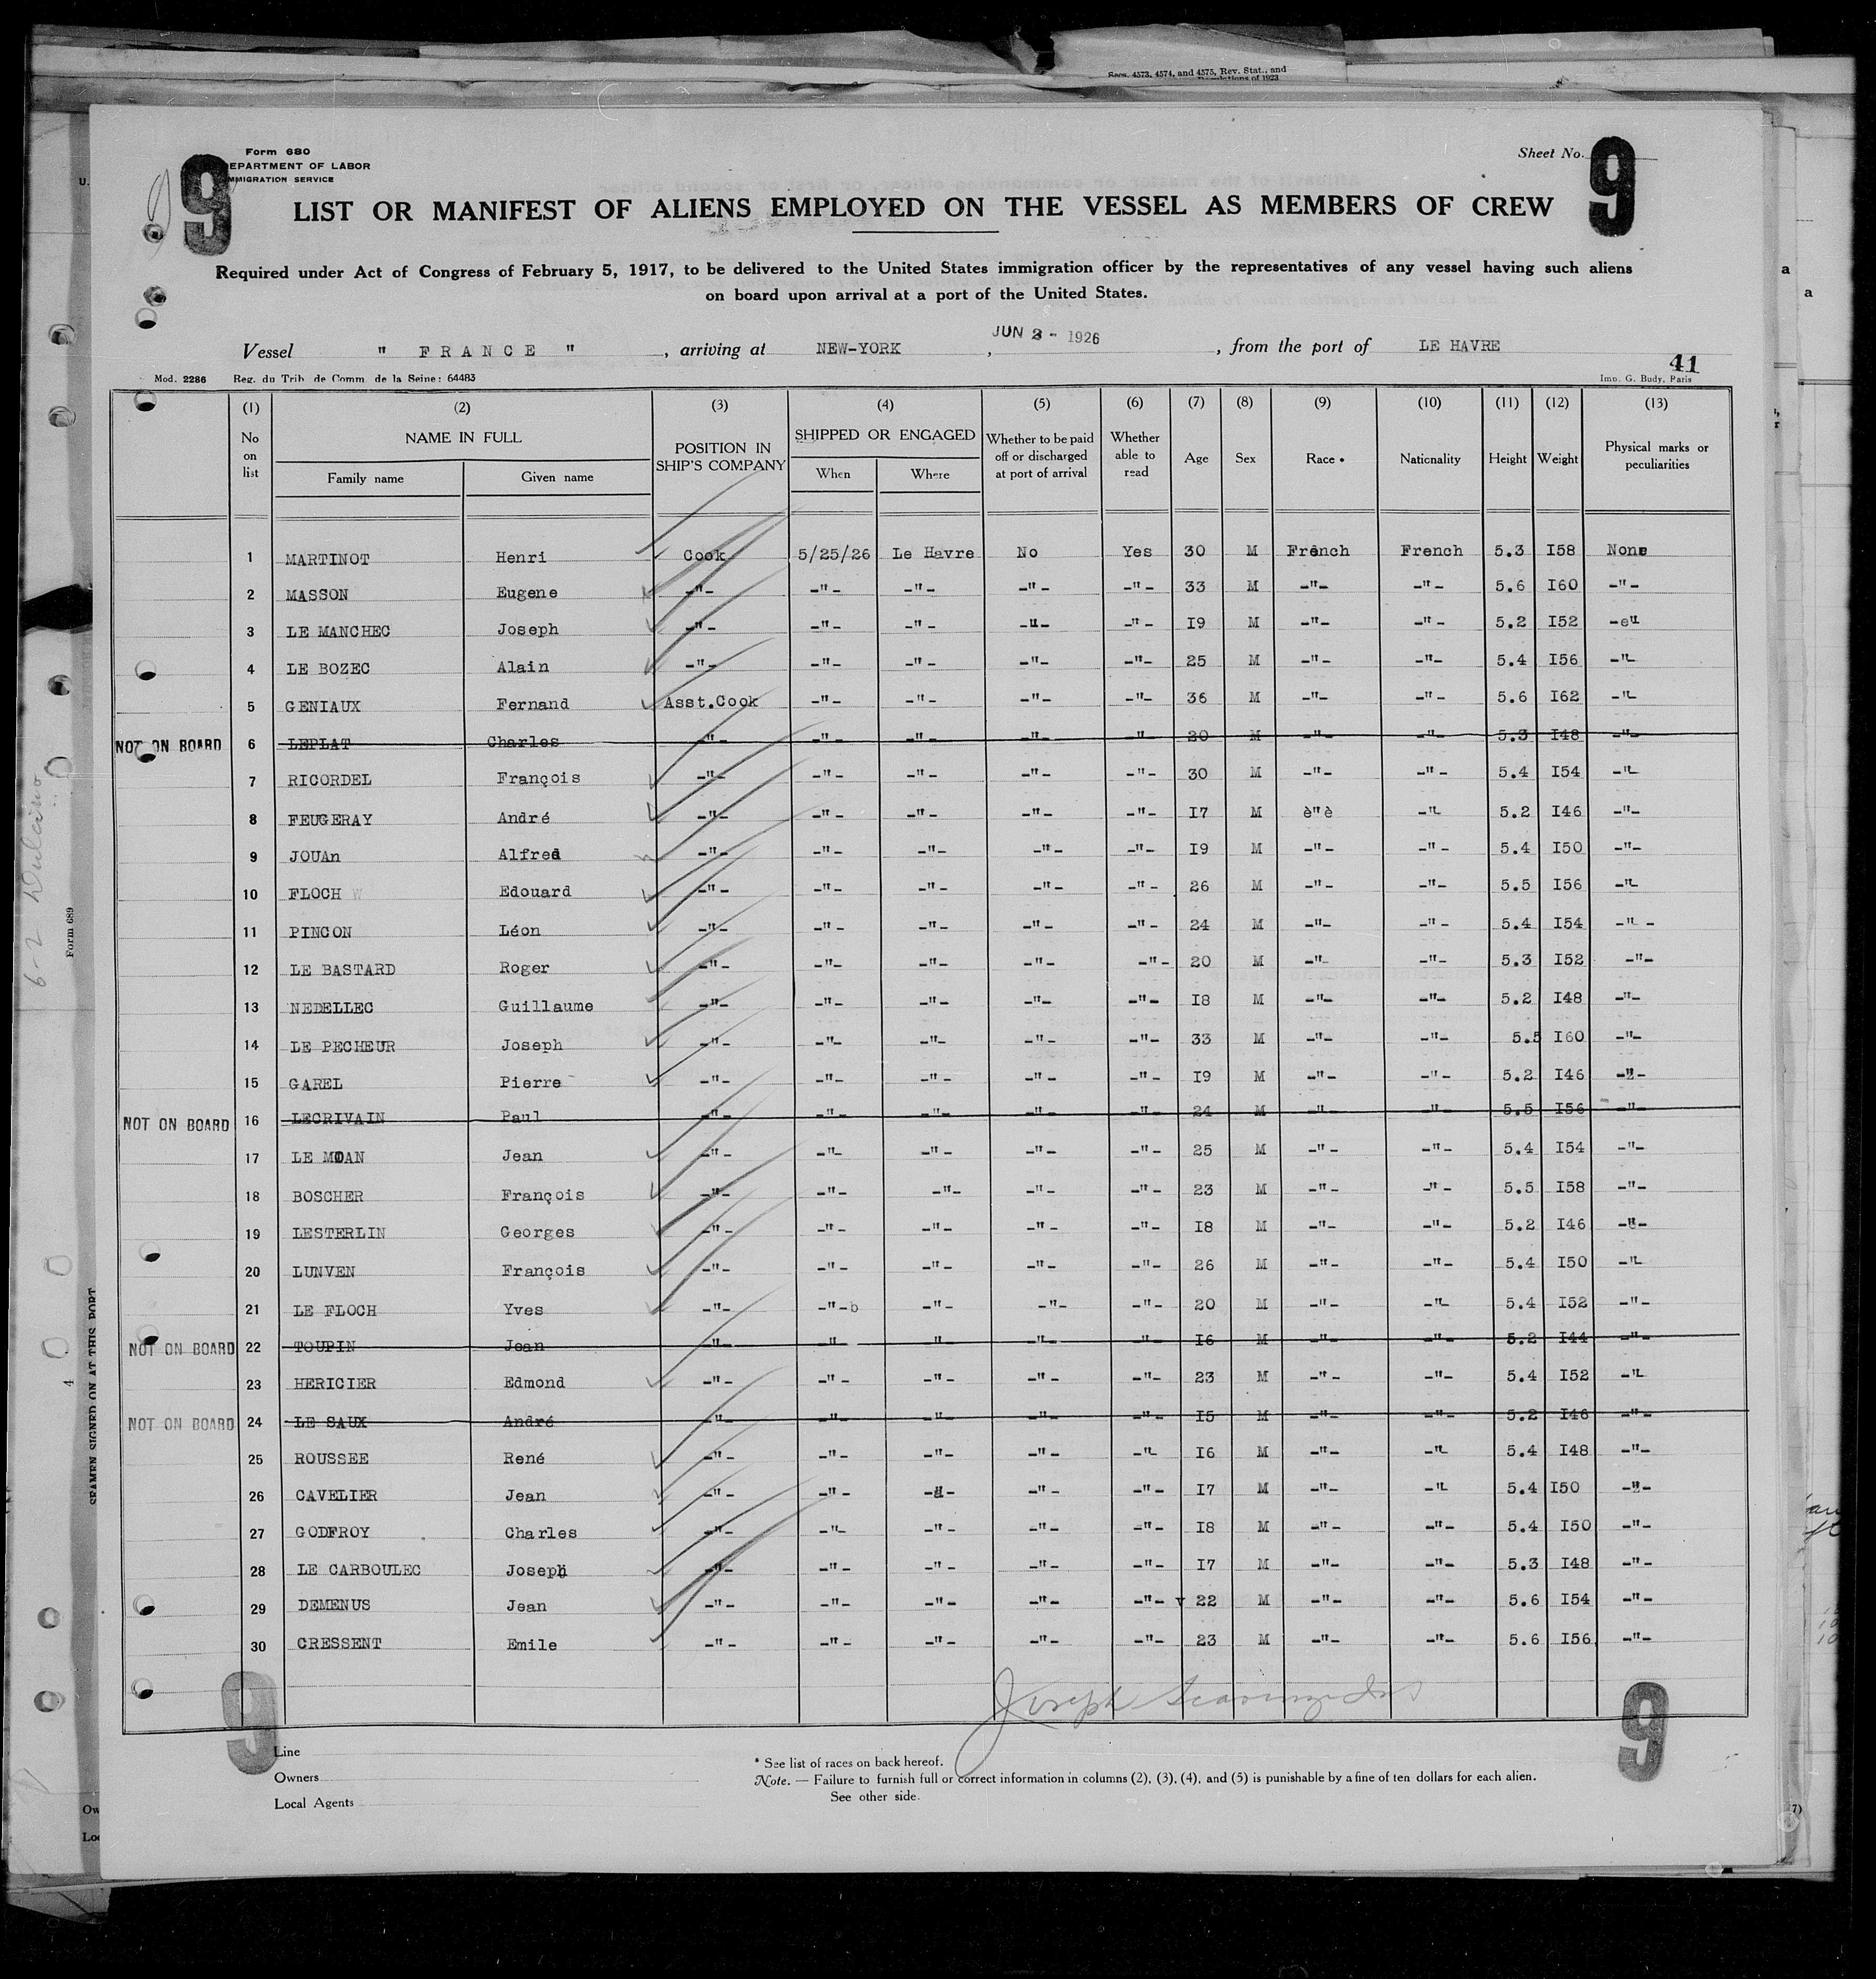 Secs. 4573, 4574, and 4575, Rev. Stat., and
Form 680
DEPARTMENT OF LABOR
IMMIGRATION SERVICE
Sheet No.
9
9
LIST OR MANIFEST OF ALIENS EMPLOYED ON THE VESSEL AS MEMBERS OF CREW
Required under Act of Congress of February 5, 1917, to be delivered to the United States immigration officer by the representatives of any vessel having such aliens
on board upon arrival at a port of the United States.
Vessel " FRANCE " , arriving at NEW-YORK , JUN 2 - 1926 , from the port of LE HAVRE
41
Mod. 2286 Reg. du Trib. de Comm. de la Seine: 64483 Imp. G. Budy, Paris
(1) (2) (3) (4) (5) (6) (7) (8) (9) (10) (11) (12) (13)
No on list NAME IN FULL Family name Given name POSITION IN SHIP'S COMPANY SHIPPED OR ENGAGED When Where Whether to be paid off or discharged at port of arrival Whether able to read Age Sex Race • Nationality Height Weight Physical marks or peculiarities
1 MARTINOT Henri Cook 5/25/26 Le Havre No Yes 30 M French French 5.3 I58 None
2 MASSON Eugene -"- -"- -"- -"- -"- 33 M -"- -"- 5.6 I60 -"-
3 LE MANCHEC Joseph -"- -"- -"- -"- -"- I9 M -"- -"- 5.2 I52 -e"
4 LE BOZEC Alain -"- -"- -"- -"- -"- 25 M -"- -"- 5.4 I56 -"-
5 GENIAUX Fernand Asst.Cook -"- -"- -"- -"- 36 M -"- -"- 5.6 I62 -"-
NOT ON BOARD 6 LEPLAT Charles -"- -"- -"- -"- -"- 20 M -"- -"- 5.3 I48 -"-
7 RICORDEL François -"- -"- -"- -"- -"- 30 M -"- -"- 5.4 I54 -"-
8 FEUGERAY André -"- -"- -"- -"- -"- I7 M è"è -"- 5.2 I46 -"-
9 JOUAn Alfred -"- -"- -"- -"- -"- I9 M -"- -"- 5.4 I50 -"-
10 FLOCH Edouard -"- -"- -"- -"- -"- 26 M -"- -"- 5.5 I56 -"-
11 PINCON Léon -"- -"- -"- -"- -"- 24 M -"- -"- 5.4 I54 -"-
12 LE BASTARD Roger -"- -"- -"- -"- -"- 20 M -"- -"- 5.3 I52 -"-
13 NEDELLEC Guillaume -"- -"- -"- -"- -"- I8 M -"- -"- 5.2 I48 -"-
14 LE PECHEUR Joseph -"- -"- -"- -"- -"- 33 M -"- -"- 5.5 I60 -"-
15 GAREL Pierre -"- -"- -"- -"- -"- I9 M -"- -"- 5.2 I46 -"-
NOT ON BOARD 16 LECRIVAIN Paul -"- -"- -"- -"- -"- 24 M -"- -"- 5.5 I56 -"-
17 LE MOAN Jean -"- -"- -"- -"- -"- 25 M -"- -"- 5.4 I54 -"-
18 BOSCHER François -"- -"- -"- -"- -"- 23 M -"- -"- 5.5 I58 -"-
19 LESTERLIN Georges -"- -"- -"- -"- -"- I8 M -"- -"- 5.2 I46 -"-
20 LUNVEN François -"- -"- -"- -"- -"- 26 M -"- -"- 5.4 I50 -"-
21 LE FLOCH Yves -"- -"-b -"- -"- -"- 20 M -"- -"- 5.4 I52 -"-
NOT ON BOARD 22 TOUPIN Jean -"- -"- -"- -"- -"- I6 M -"- -"- 5.2 I44 -"-
23 HERICIER Edmond -"- -"- -"- -"- -"- 23 M -"- -"- 5.4 I52 -"-
NOT ON BOARD 24 LE SAUX André -"- -"- -"- -"- -"- I5 M -"- -"- 5.2 I46 -"-
25 ROUSSEE René -"- -"- -"- -"- -"- I6 M -"- -"- 5.4 I48 -"-
26 CAVELIER Jean -"- -"- -"- -"- -"- I7 M -"- -"- 5.4 I50 -"-
27 GODFROY Charles -"- -"- -"- -"- -"- I8 M -"- -"- 5.4 I50 -"-
28 LE CARBOULEC Joseph -"- -"- -"- -"- -"- I7 M -"- -"- 5.3 I48 -"-
29 DEMENUS Jean -"- -"- -"- -"- -"- 22 M -"- -"- 5.6 I54 -"-
30 CRESSENT Emile -"- -"- -"- -"- -"- 23 M -"- -"- 5.6 I56 -"-
Joseph
9
9
Line
Owners
Local Agents
* See list of races on back hereof.
Note. — Failure to furnish full or correct information in columns (2), (3), (4), and (5) is punishable by a fine of ten dollars for each alien.
See other side.
Form 689
SEAMEN SIGNED ON AT THIS PORT